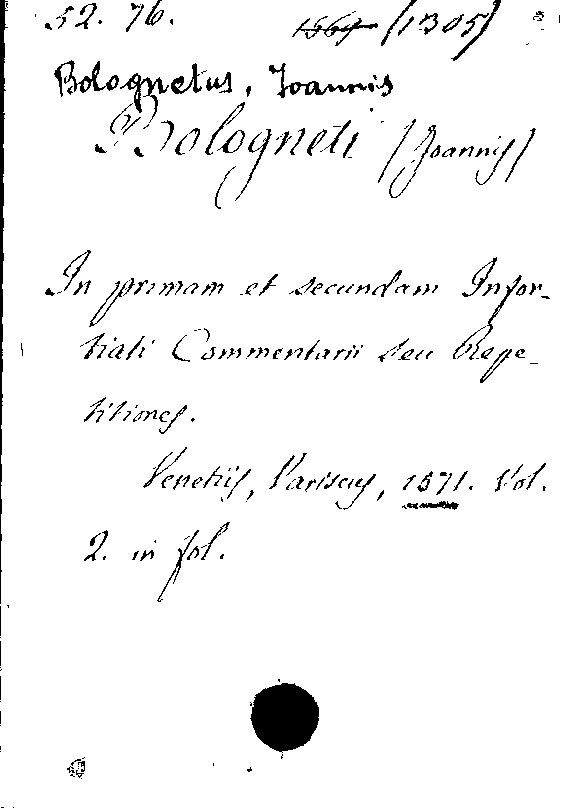 52. 76. 1564 (1305)
Bolognetus, Joannis
Bologneti (Joannis)
In primam et secundam Infor-
tiati Commentarii seu Repe-
titiones.
Venetiis, Variscus, 1571. Vol.
2. in fol.